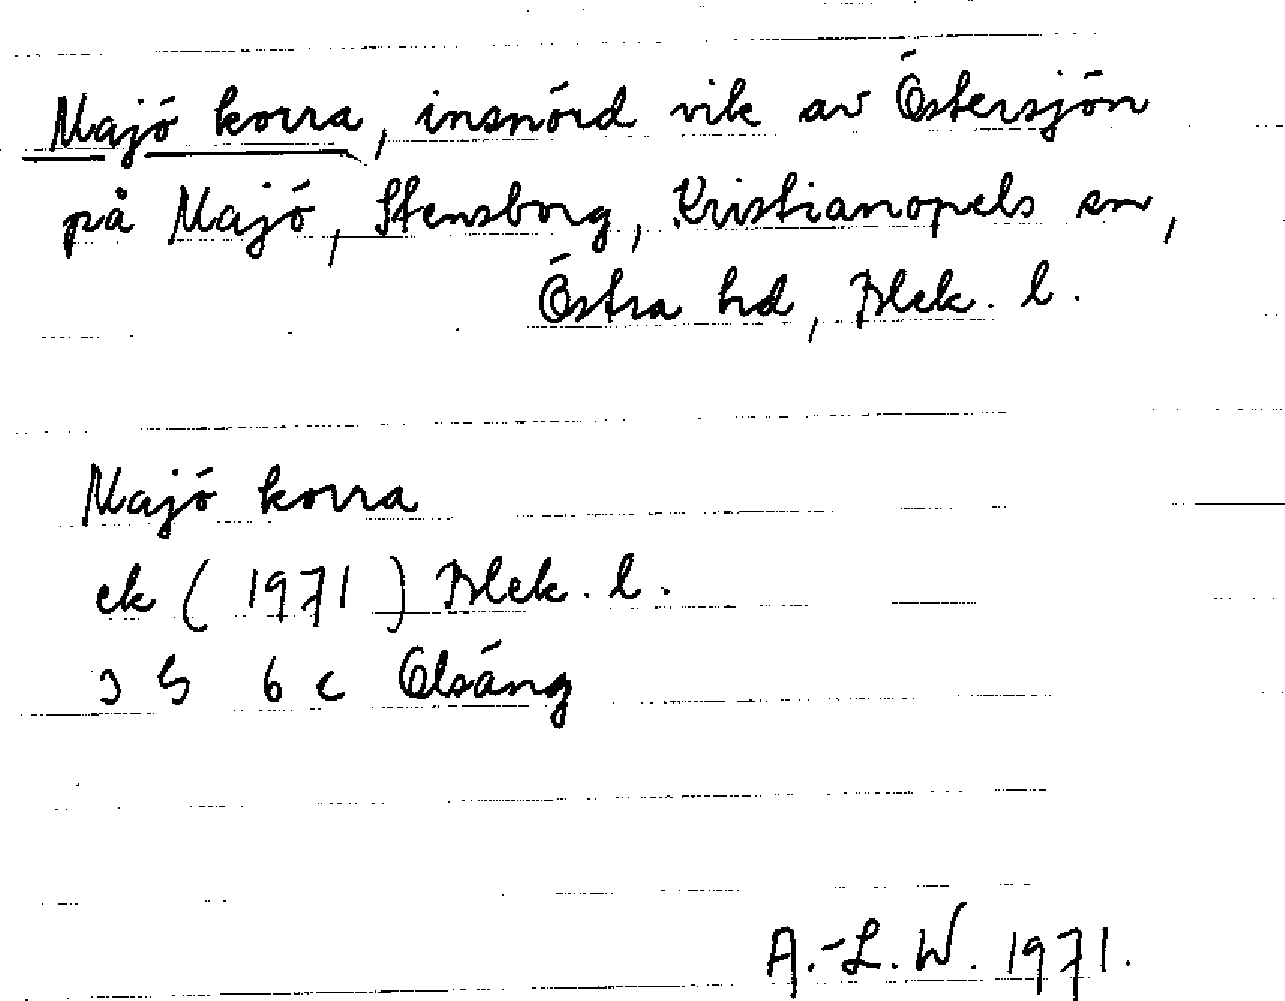 Majö korra, insnörd vik av Östersjön
på Majö, Stensborg, Kristianopels sn,
Östra hd, Blek. l.
Majö korra
ek (1971) Blek. l.
3 G 6 c Olsäng
A.-L. W. 1971.